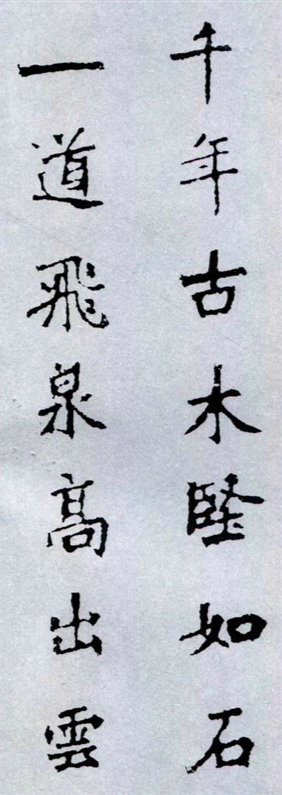 千年古木堅如石
一道飛泉高出雲